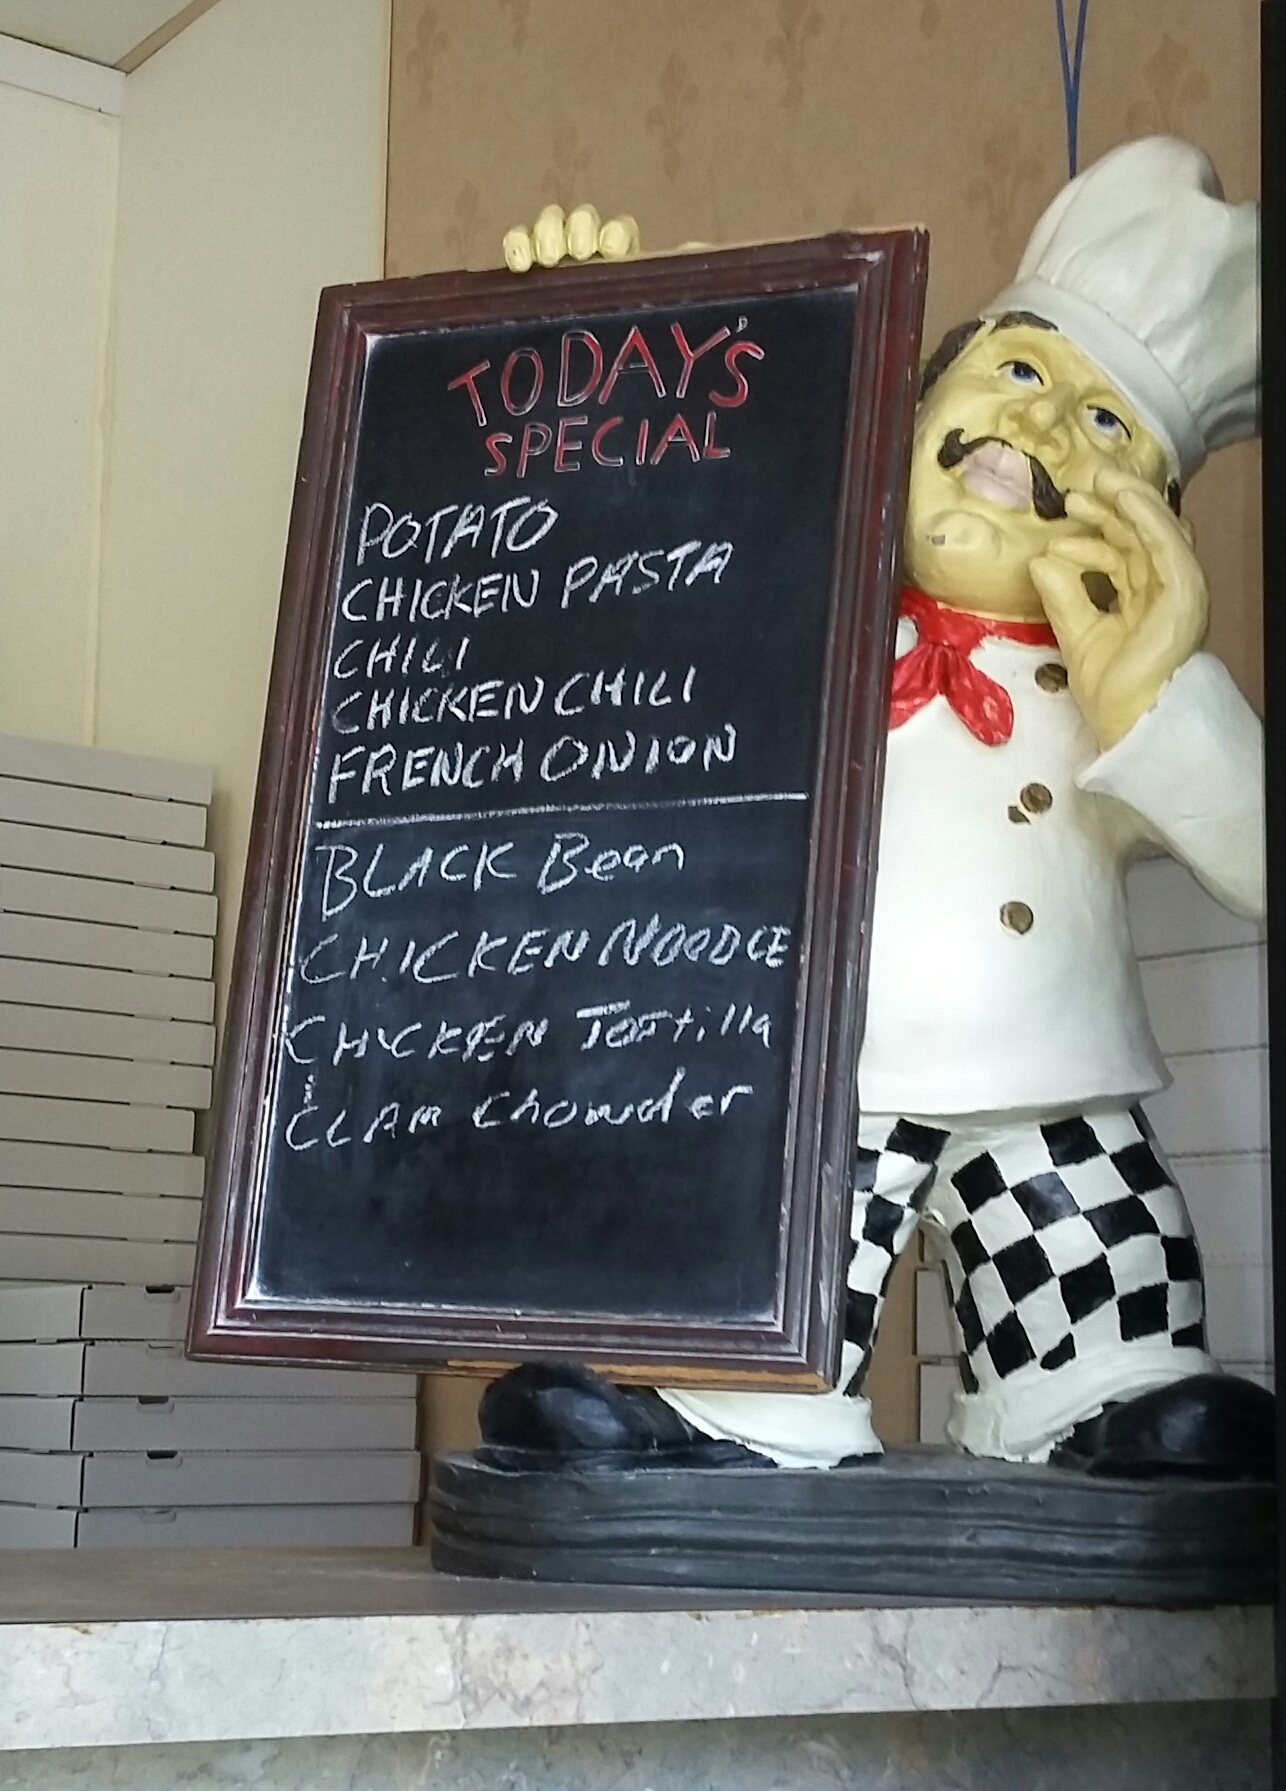 TODAY'S
SPECIAL
POTATO
CHICKEN PASTA
CHILI
CHICKEN CHILI
FRENCH ONION
BLACK Bean
CHICKEN NOODLE
CHICKEN Tortilla
CLAM Chowder